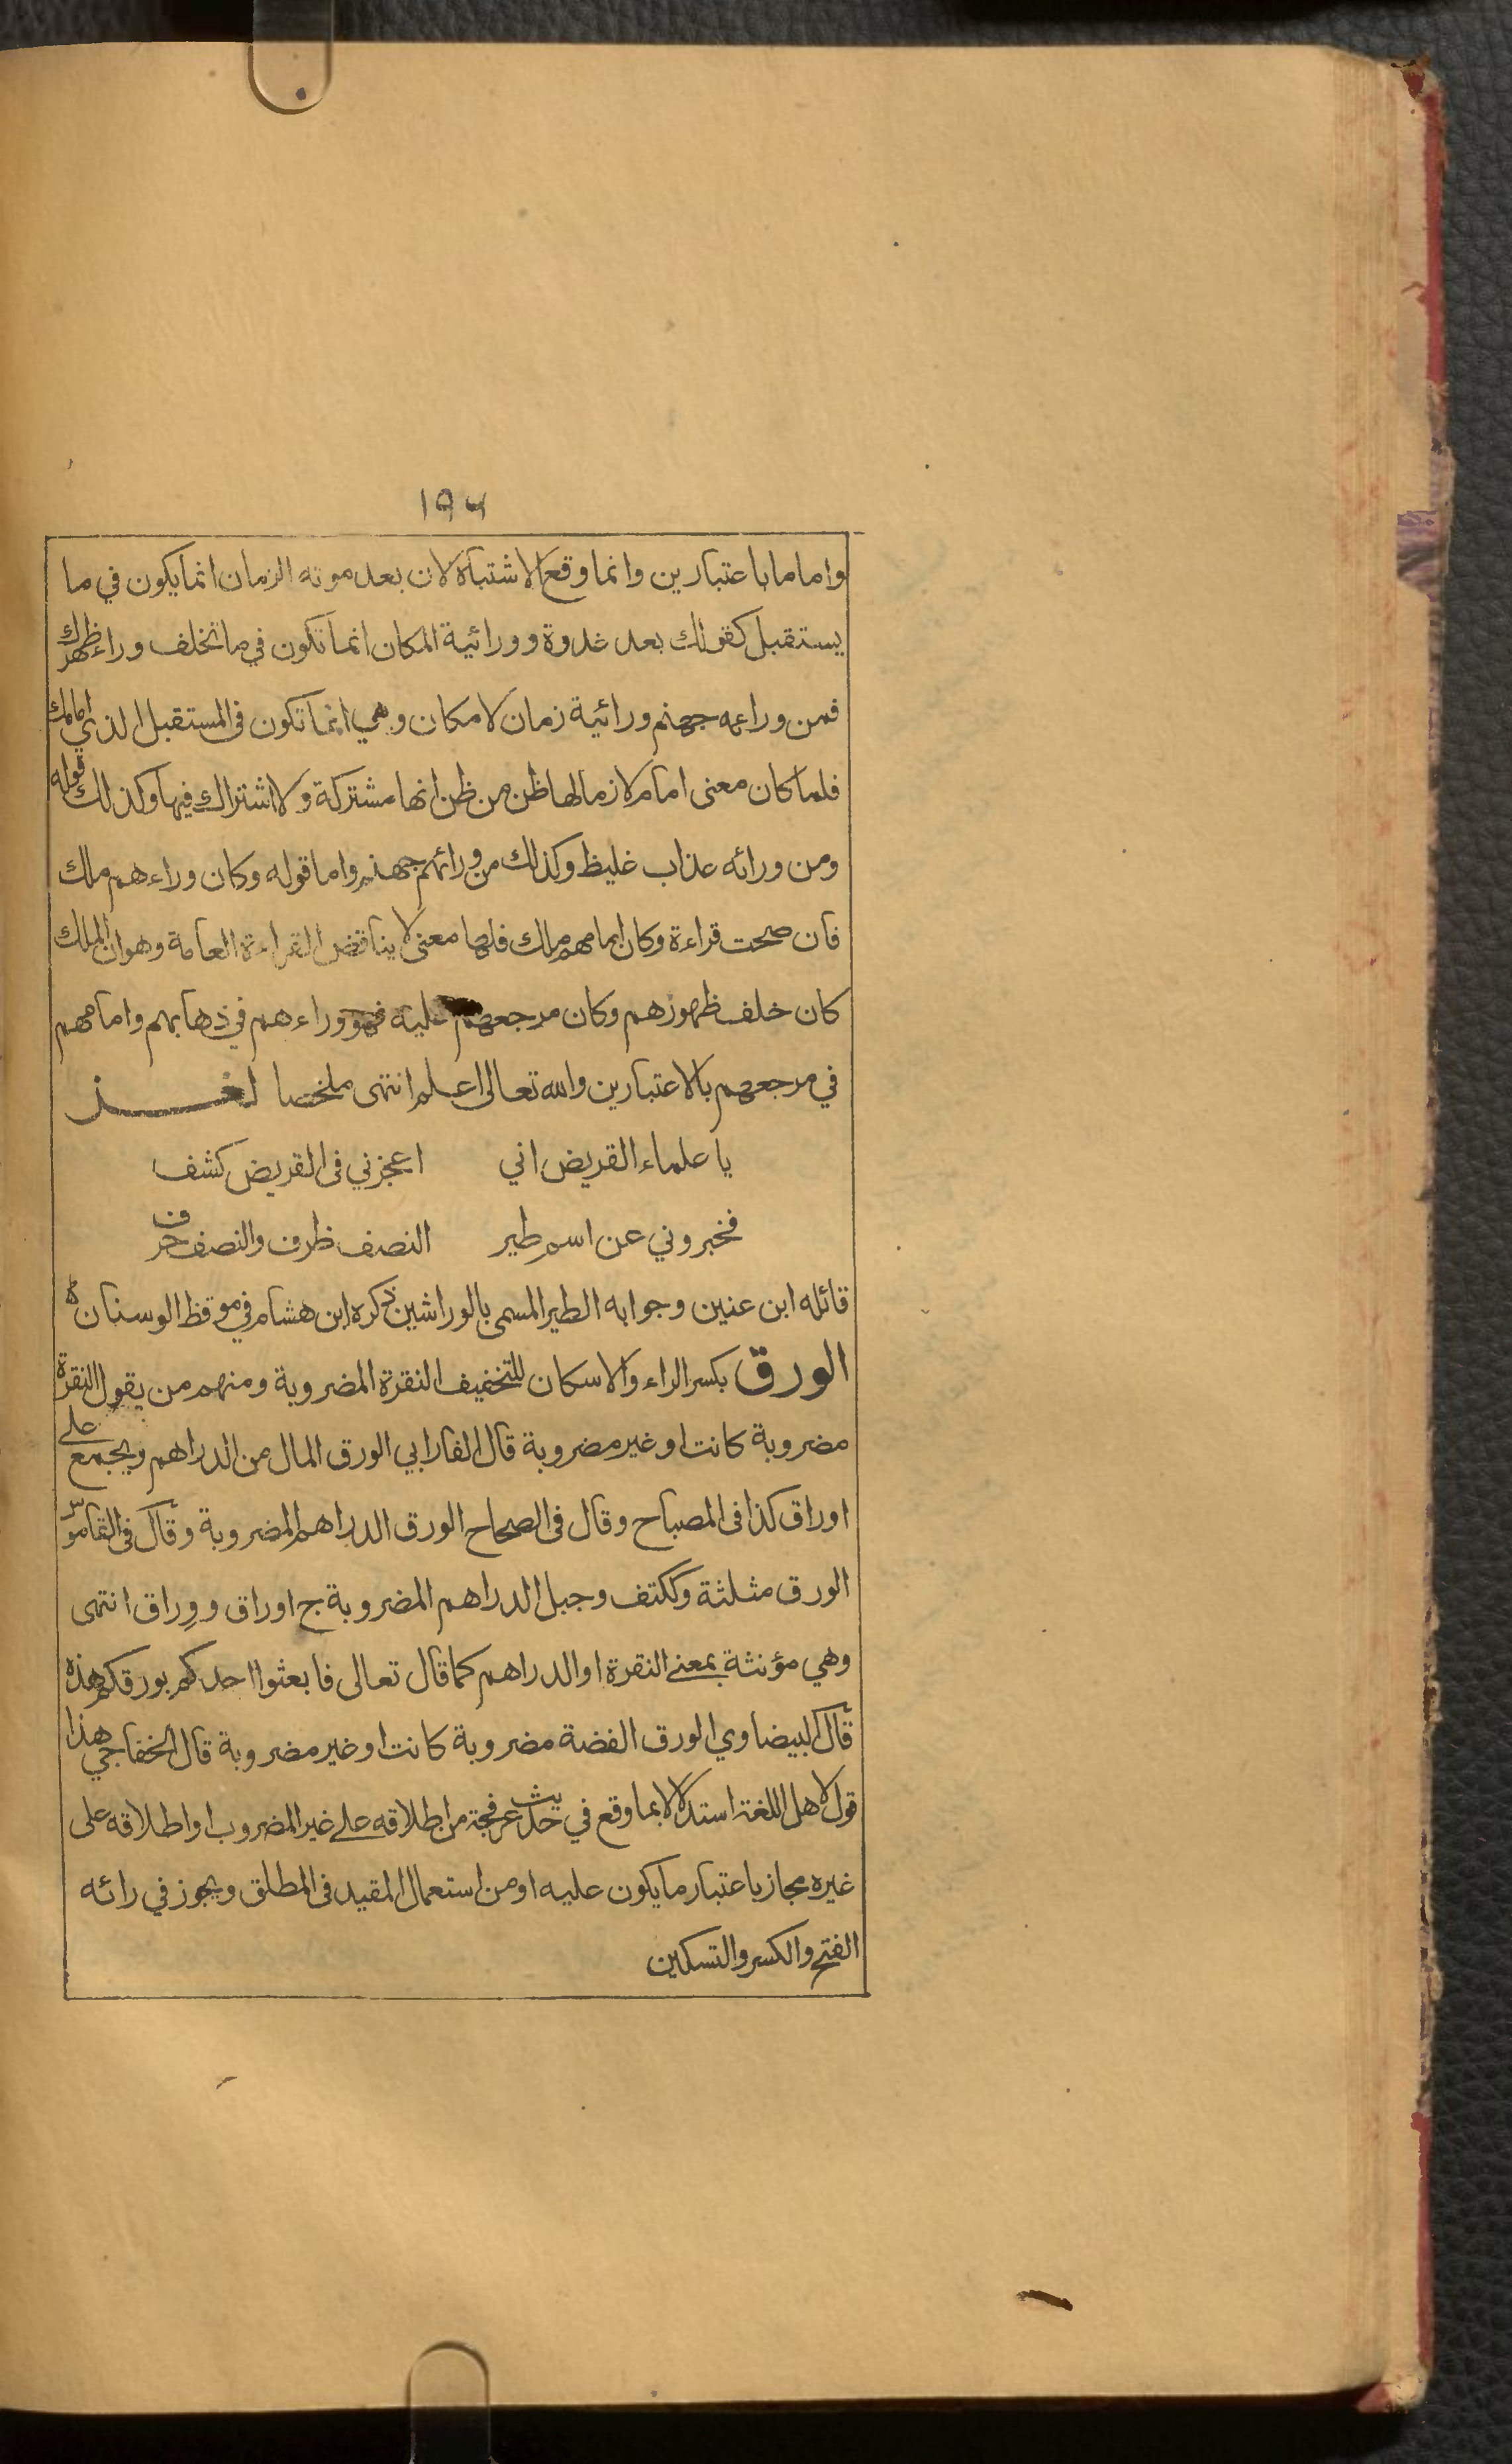 ١٩٦
واماما باعتبارين وانما وقع الاشتباه لان بعد موته الزمان انما يكون في ما
يستقبل كقولك بعد غدوة وورائية المكان انما تكون في ما تخلف وراء ظهرك
فمن ورائه جهنم ورائية زمان لا مكان وهي انما تكون في المستقبل الذي امامك
فلما كان معنى امام لازما لها ظن من ظن انها مشتركة ولا اشتراك فيها وكذلك قوله
ومن ورائه عذاب غليظ وكذلك من ورائهم جهنم واما قوله وكان وراءهم ملك
فان صحت قراءة وكان امامهم ملك فلها معنى لا يناقض القراءة العامة وهو ان الملك
كان خلف ظهورهم وكان مرجعهم عليه فهو وراءهم في ذهابهم وامامهم
في مرجعهم بالاعتبارين والله تعالى اعلم انتهى ملخصا لغز
يا علماء القريض اني اعجزني في القريض كشف
فخبروني عن اسم طير النصف ظرف والنصف حرف
قائله ابن عنين وجوابه الطير المسمى بالوراشين ذكره ابن هشام في موقظ الوسنان ه
الورق بكسر الراء والاسكان للتخفيف النقرة المضروبة ومنهم من يقول النقرة
مضروبة كانت او غير مضروبة قال الفارابي الورق المال من الدراهم ويجمع على
اوراق كذا في المصباح وقال في الصحاح الورق الدراهم المضروبة وقال في القاموس
الورق مثلثة وككتف وجبل الدراهم المضروبة ج اوراق ووِراق انتهى
وهي مؤنثة بمعنى النقرة او الدراهم كما قال تعالى فابعثوا احدكم بورقكم هذه
قال البيضاوي الورق الفضة مضروبة كانت او غير مضروبة قال الخفاجي هذا
قول لاهل اللغة استدلالا بما وقع في حديث عرفجة من اطلاقه على غير المضروب او اطلاقه على
غيره مجاز باعتبار ما يكون عليه او من استعمال المقيد في المطلق ويجوز في رائه
الفتح والكسر والتسكين